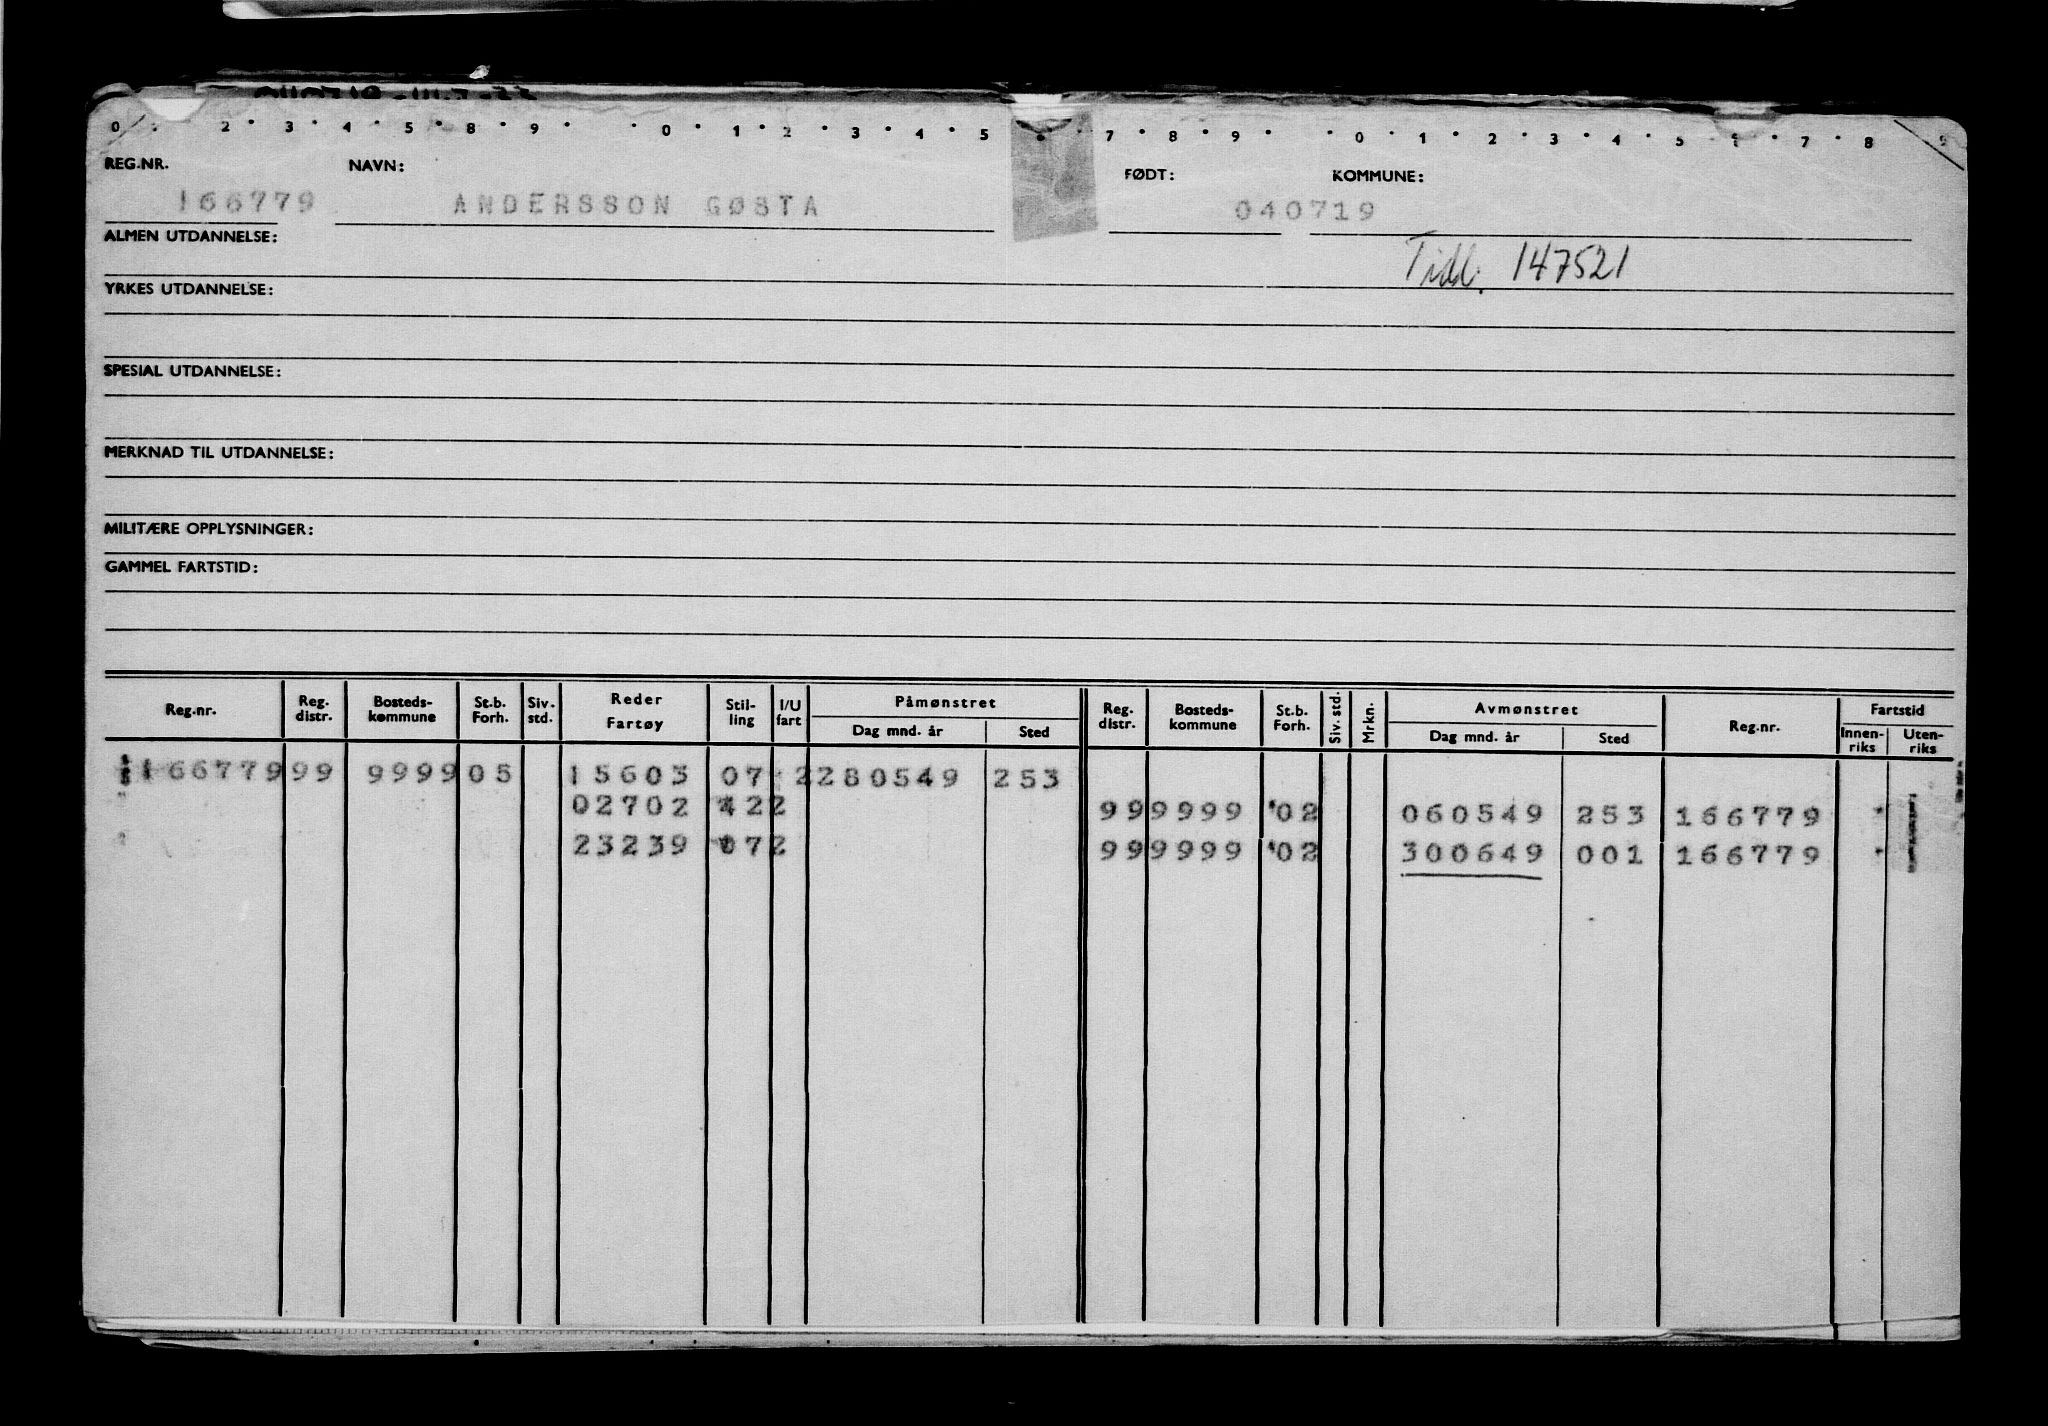 0 2 3 4 5 8 9 0 1 2 3 4 5 7 8 9 0 1 2 3 4 5 7 8 9
REG.NR. NAVN: FØDT: KOMMUNE:
166779 ANDERSSON GØSTA 040719
ALMEN UTDANNELSE:
Tidl. 147521
YRKES UTDANNELSE:
SPESIAL UTDANNELSE:
MERKNAD TIL UTDANNELSE:
MILITÆRE OPPLYSNINGER:
GAMMEL FARTSTID:
Reg.nr. Reg. distr. Bosteds-kommune St.b. Forh. Siv. std. Reder Fartøy Stil-ling I/U fart Påmønstret Dag mnd. år Sted Reg. distr. Bosteds-kommune St.b. Forh. Siv. std. Mrkn. Avmønstret Dag mnd. år Sted Reg.nr. Fartstid Innen-riks Uten-riks
166779 99 9999 05 15603 07 2 280549 253
02702 422 99 9999 02 060549 253 166779
23239 072 99 9999 02 300649 001 166779